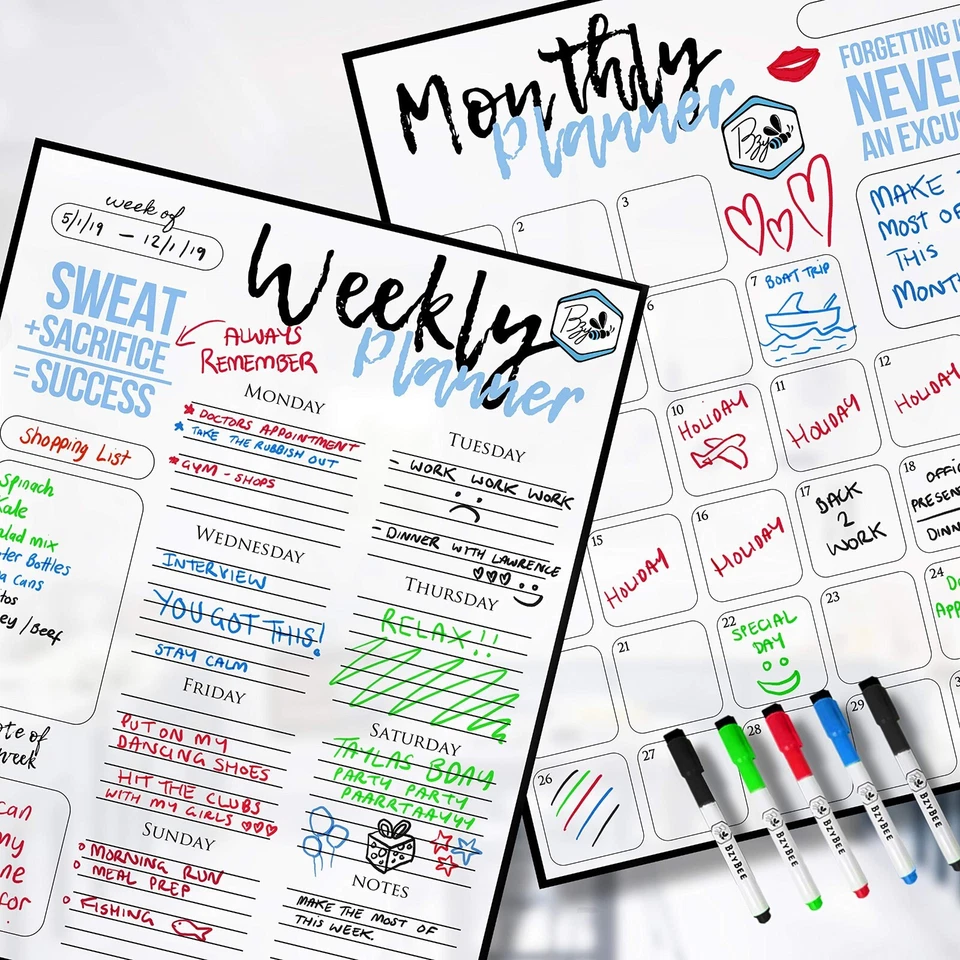 Monthly
Planner
Bzy
FORGETTING
NEVER
AN
MAKE
MOST
THIS
2
3
6
7 BOAT TRIP
10 HOLIDAY
11 HOLIDAY
12 HOLIDAY
15 HOLIDAY
16 HOLIDAY
17 BACK
2
WORK
18
21
22 SPECIAL
DAY
23
24
26
27
28
29
BZYBEE
BZYBEE
BZYBEE
BZYBEE
BZYBEE
week of
5/1/19 - 12/1/19
Weekly
Planner
Bzy
SWEAT
+SACRIFICE
=SUCCESS
ALWAYS
REMEMBER
Shopping List
Spinach
Kale
mix
Bottles
cans
/Beef
of
week
can
my
for
MONDAY
DOCTORS APPOINTMENT
TAKE THE RUBBISH OUT
GYM - SHOPS
TUESDAY
- WORK WORK WORK
DINNER WITH LAWRENCE
WEDNESDAY
INTERVIEW
YOU GOT THIS!
STAY CALM
THURSDAY
RELAX!!
FRIDAY
PUT ON MY
DANCING SHOES
HIT THE CLUBS
WITH MY GIRLS
SATURDAY
TAYLAS BDAY
PARTY PARTY
PAARRTAAYYY
SUNDAY
MORNING RUN
MEAL PREP
FISHING
NOTES
MAKE THE MOST OF
THIS WEEK.